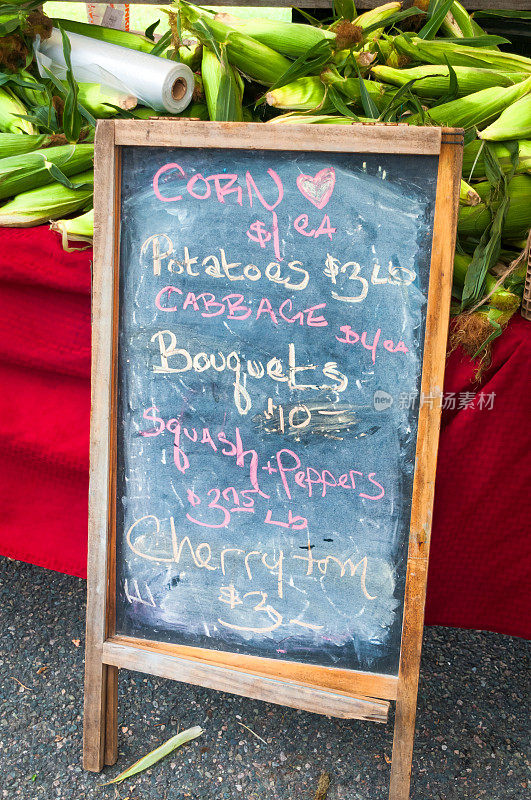 CORN
$1 eA
Potatoes $3 Lb
CABBAGE
$4 ea
Bouquets
$10
Squash
+ Peppers
$3.75 Lb
Cherry tom
$3.-
新图网 new